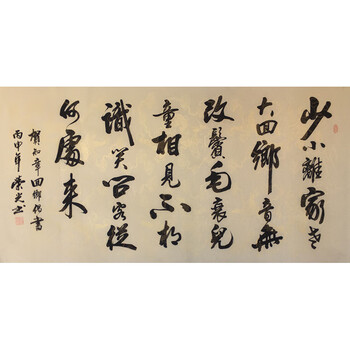 少小離家老
大回鄉音無
改鬢毛衰兒
童相見不相
識笑问客從
何處来
賀知章回鄉偶書
丙申年荣光书